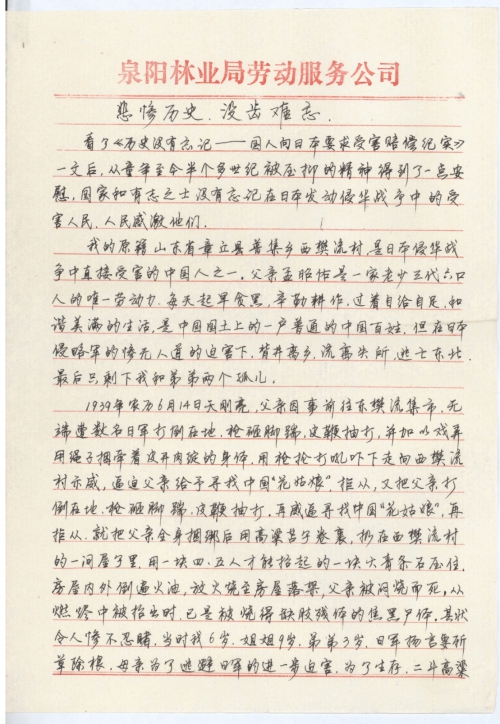 泉阳林业局劳动服务公司
悲惨历史.没齿难忘.
看了《历史没有忘记——国人向日本要求受害赔偿纪实》
一文后,从童年至今半个多世纪被压抑的精神得到了一点安
慰,国家和有志之士没有忘记在日本发动侵华战争中的受
害人民,人民感激他们.
我的原籍山东省章立县普集乡西樊流村,是日本侵华战
争中直接受害的中国人之一,父亲孟昭佑是一家老少三代六口
人的唯一劳动力.每天起早食黑,辛勤耕作,过着自给自足,和
谐美满的生活,是中国国土上的一户普通的中国百姓,但在日本
侵略军的惨无人道的迫害下,背井离乡,流离失所,逃亡东北.
最后只剩下我和弟弟两个孤儿.
1939年农历6月14日天刚亮,父亲因事前往东樊流集市,无
端遭数名日军打倒在地.枪砸脚踹,皮鞭抽打,并加以戏弄
用绳子捆牵着皮开肉绽的身体,用枪抡打吼吓下走向西樊流
村示威,逼迫父亲给予寻找中国"花姑娘",拒从,又把父亲打
倒在地.枪砸脚踹,皮鞭抽打,再威逼寻找中国"花姑娘",再
拒从.就把父亲全身捆绑后用高梁苫子卷裹,抄在西樊流村
的一间屋子里,用一块四.五人才能抬起的一块大青条石压住,
房屋内外倒遍火油,放火烧至房屋落架,父亲被闷烧而死,从
燃烬中被抬出时.已是被烧得缺肢残体的焦黑尸体,其状
令人惨不忍睹,当时我6岁.姐姐9岁,弟弟3岁,日军扬言要斩
草除根,母亲为了逃避日军的进一步迫害,为了生存,二斗高梁